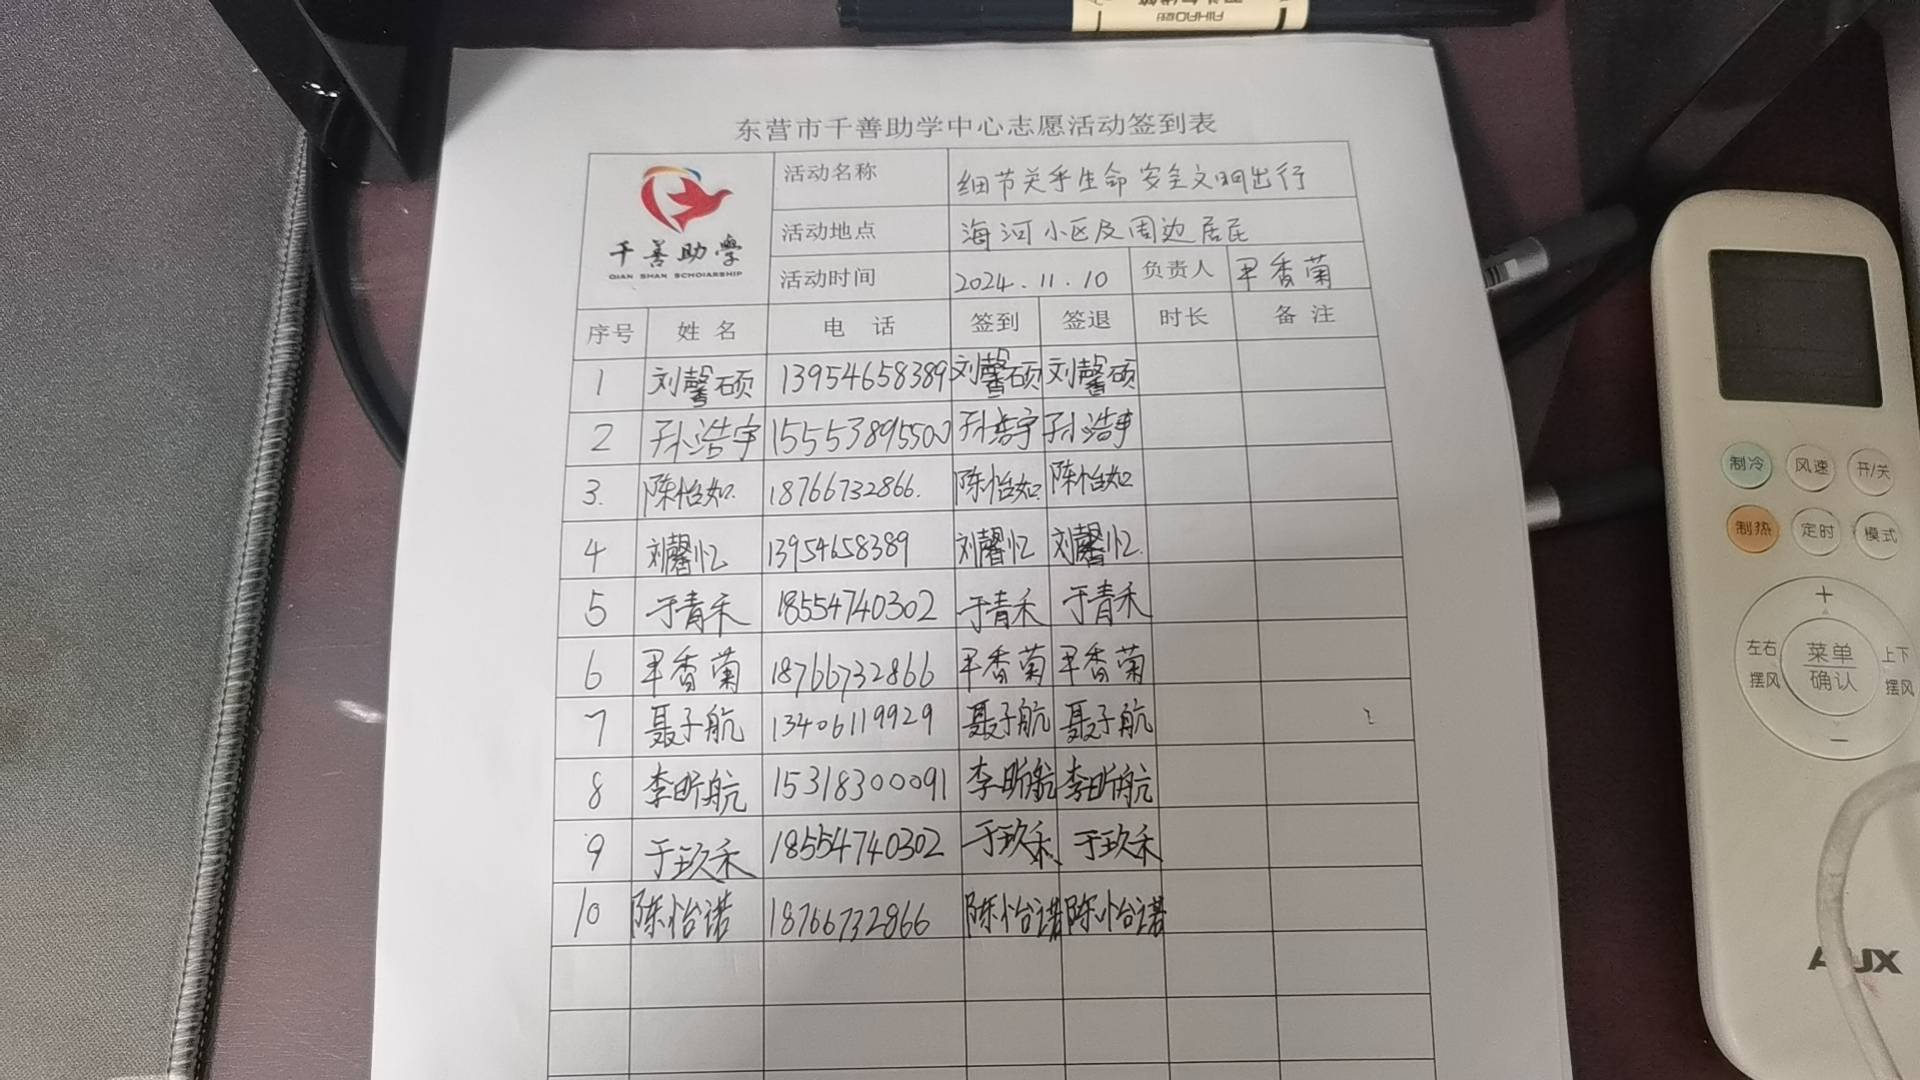 东营市千善助学中心志愿活动签到表
千善助学
QIAN SHAN SCHOLARSHIP
活动名称 细节关乎生命 安全文明出行
活动地点 海河小区及周边居民
活动时间 2024.11.10 负责人 香菊
序号 姓名 电话 签到 签退 时长 备注
1 刘馨硕 13954658389 刘馨硕 刘馨硕
2 孙浩宇 15553895500 孙浩宇 孙浩宇
3. 陈怡如. 18766732866. 陈怡如. 陈怡如
4 刘馨忆 13954658389 刘馨忆 刘馨忆.
5 于青禾 18554740302 于青禾 于青禾
6 香菊 18766732866 香菊 香菊
7 聂子航 13406119929 聂子航 聂子航
8 李昕航 15318300091 李昕航 李昕航
9 于玖禾 18554740302 于玖禾 于玖禾
10 陈怡诺 18766732866 陈怡诺 陈怡诺
AIHAO
制冷 风速 开/关
制热 定时 模式
+
左右摆风 菜单 确认 上下摆风
−
AUX